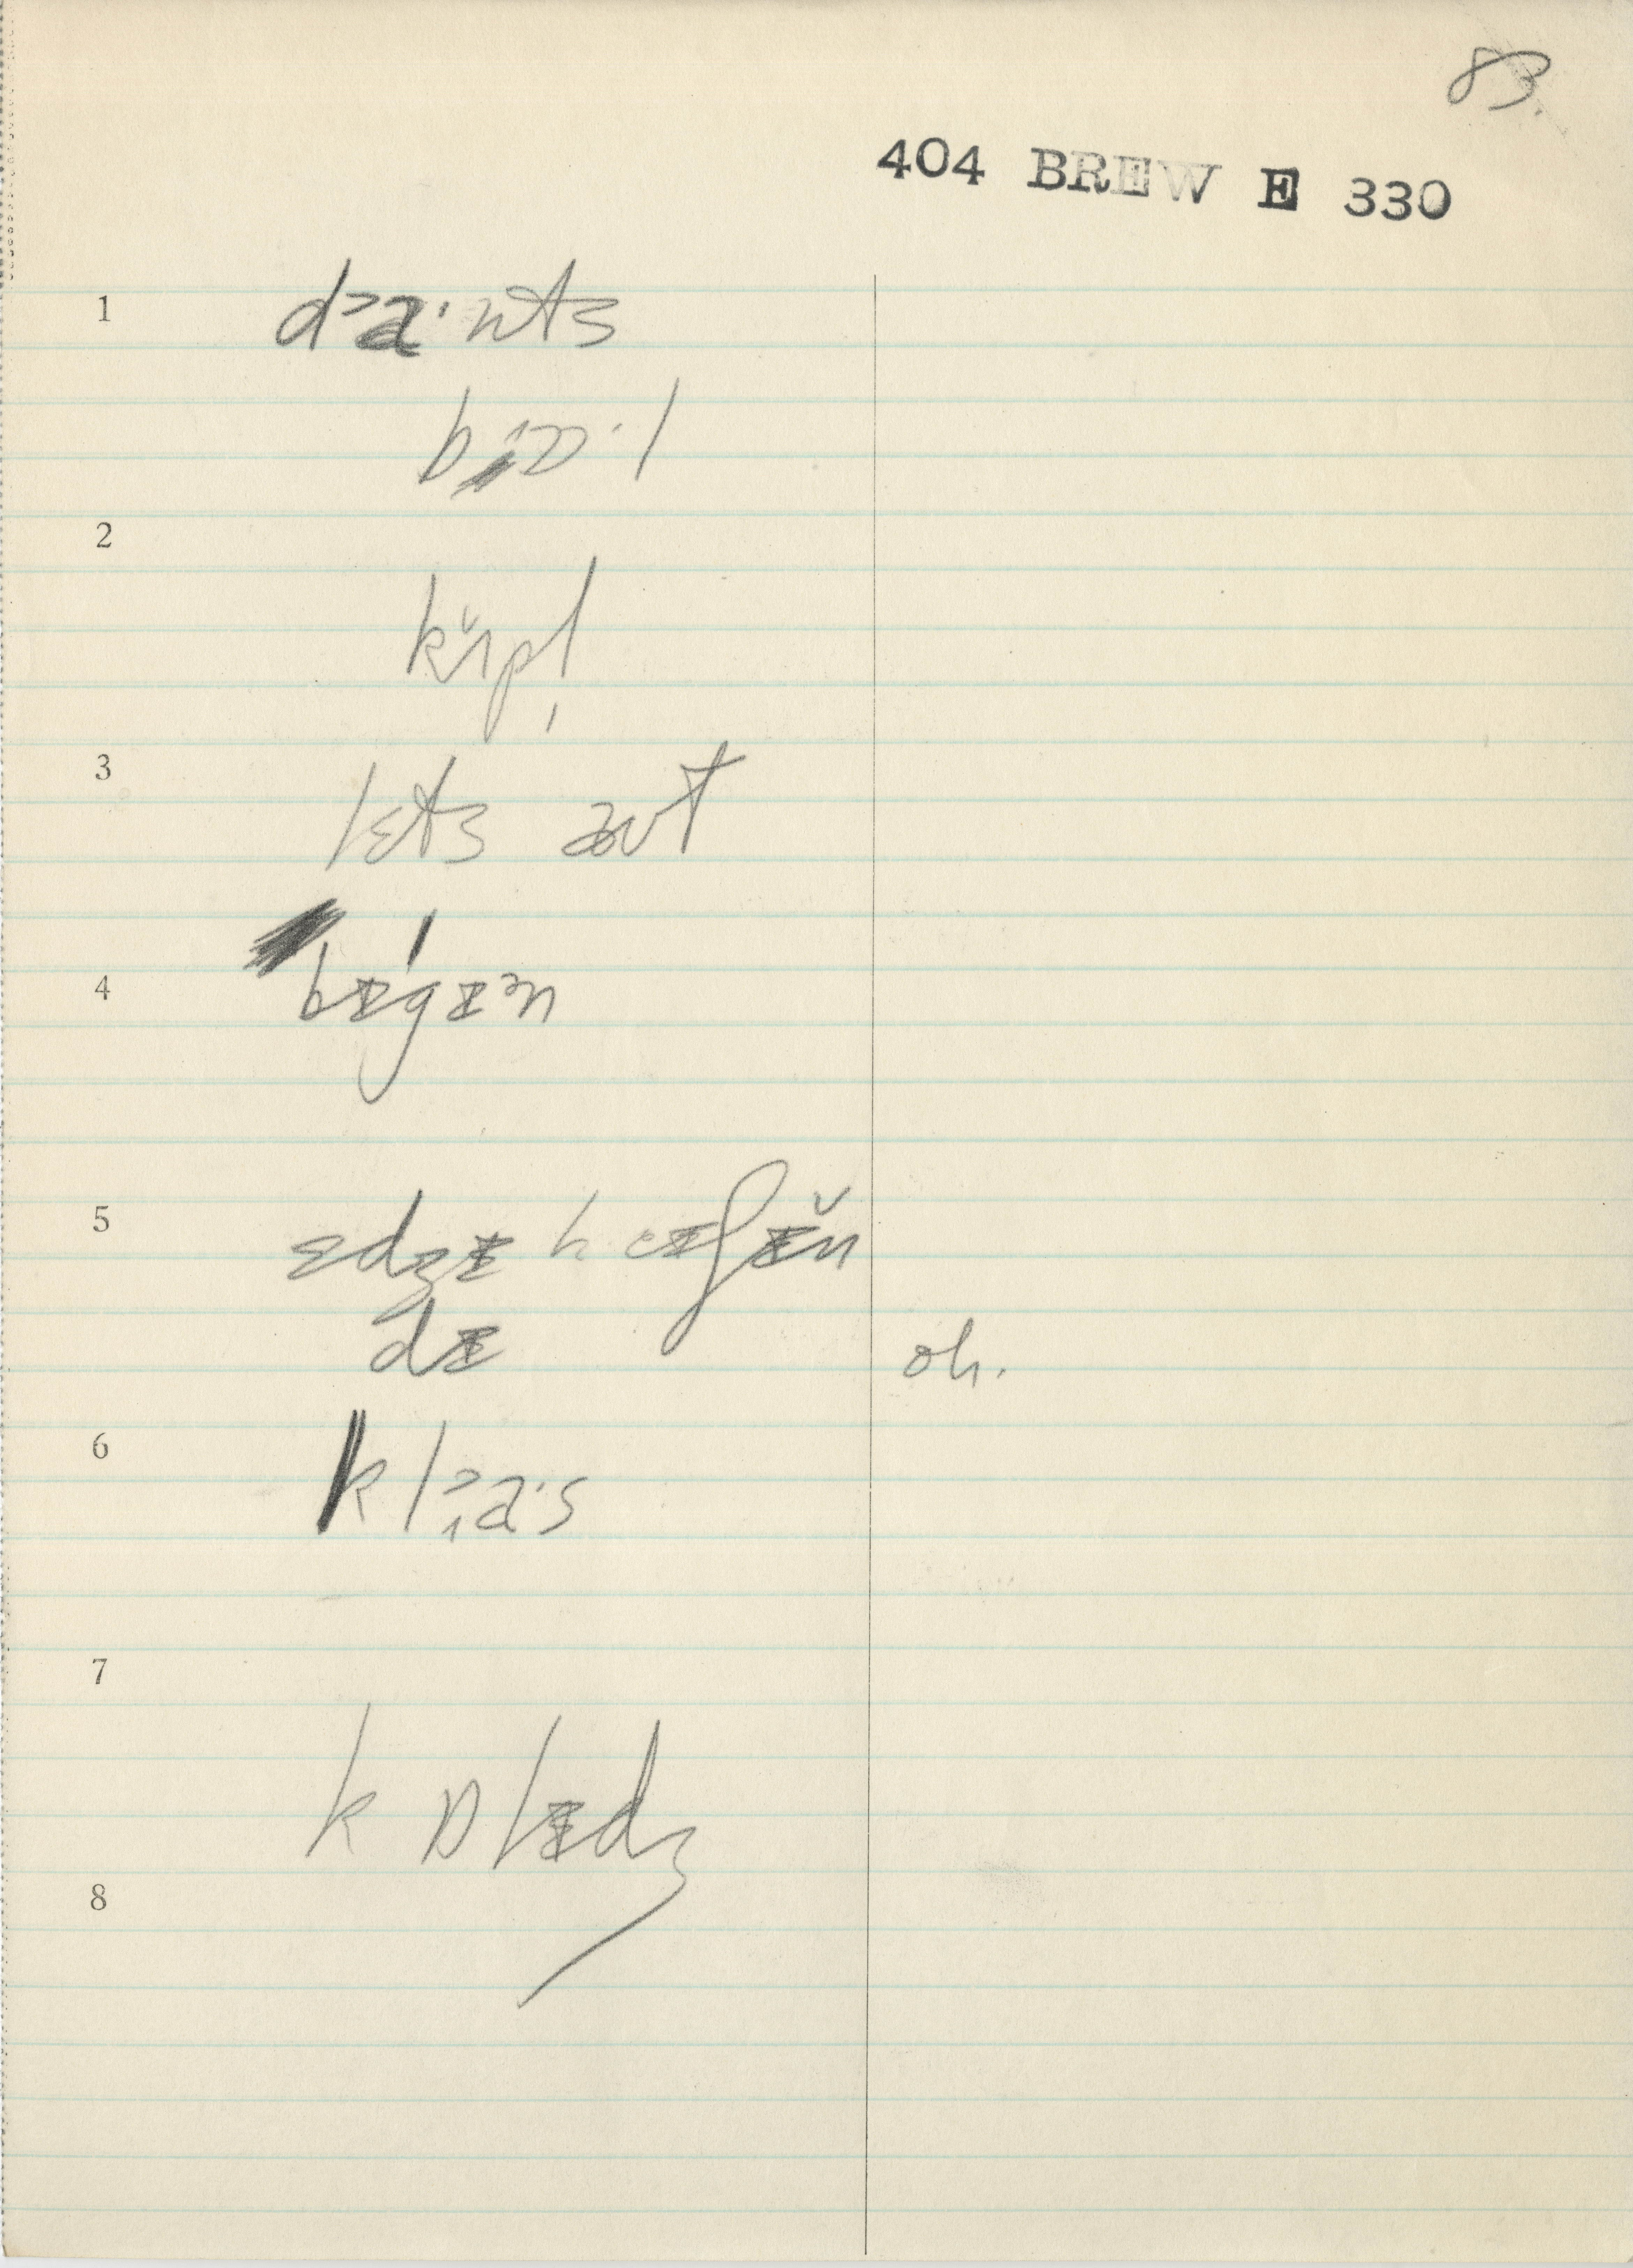 83.
404 BREW E 330
1 d᾽a·nts
bɒ·l
2
kɪ̆pl̩
3 lɛts aʊt
4 bɪgɪᵊn
5 ɛdʒɪ
dɪ oh.
6 klᵊa·s
7
kɒlɪdʒ
8